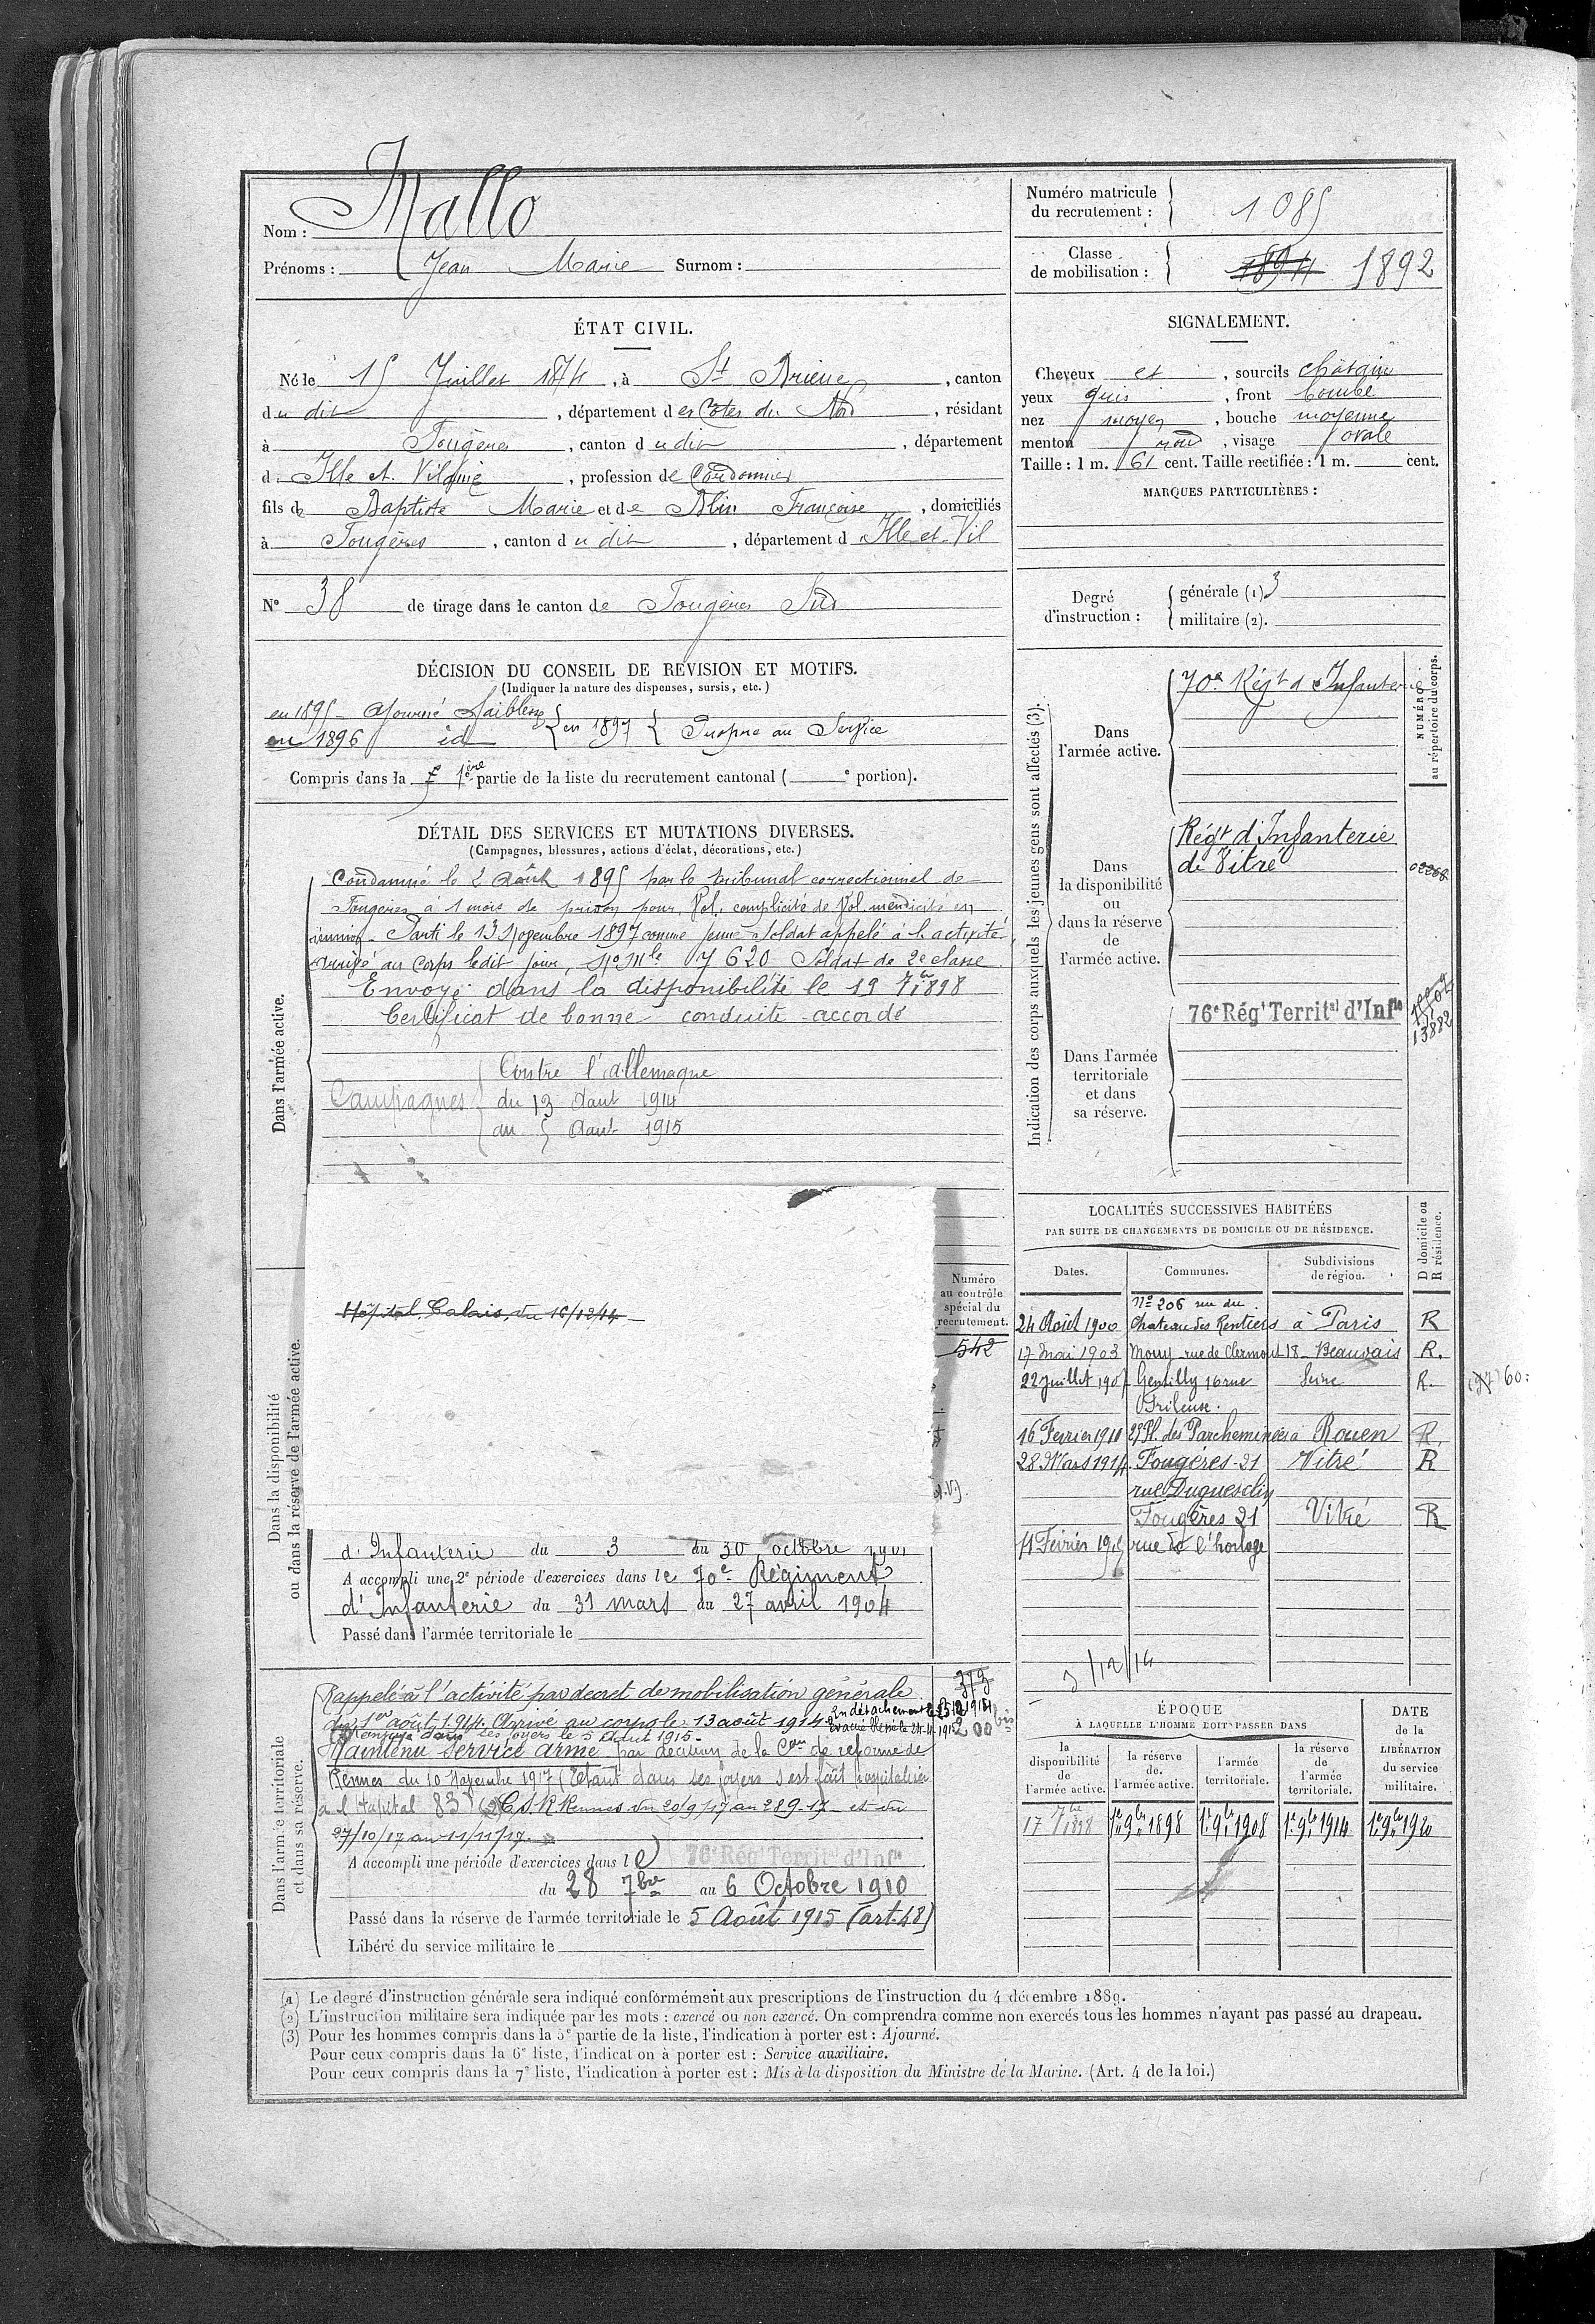 Nom : Mallo
Prénoms : Jean Marie Surnom :
Numéro matricule du recrutement : 1085
Classe de mobilisation : 1894 1892
ÉTAT CIVIL.
Né le 15 Juillet 1874, à St Brieuc, canton
du dit, département des Côtes du Nord, résidant
à Fougères, canton du dit, département
d. Ille et Vilaine, profession de Cordonnier
fils de Baptiste Marie et de Blin Françoise, domiciliés
à Fougères, canton du dit, département d Ille et Vil
N° 38 de tirage dans le canton de Fougères Sud
SIGNALEMENT.
Cheveux et, sourcils châtain
yeux gris, front bombé
nez moyen, bouche moyenne
menton rond, visage ovale
Taille : 1 m. 61 cent. Taille rectifiée : 1 m. cent.
MARQUES PARTICULIÈRES :
Degré d'instruction : générale (1) 3
militaire (2).
DÉCISION DU CONSEIL DE REVISION ET MOTIFS.
(Indiquer la nature des dispenses, sursis, etc.)
en 1895 - Ajourné faiblesse
en 1896 id en 1897 Propre au Service
Compris dans la 1ère partie de la liste du recrutement cantonal ( e portion).
DÉTAIL DES SERVICES ET MUTATIONS DIVERSES.
(Campagnes, blessures, actions d'éclat, décorations, etc.)
Dans l'armée active.
Condamné le 2 Août 1895 par le tribunal correctionnel de
Fougères à 1 mois de prison pour Vol, complicité de Vol. mendicité en
réunion. Parti le 13 Novembre 1897 comme jeune soldat appelé à l'activité
arrivé au corps ledit jour, No Mle 7620 Soldat de 2e classe
Envoyé dans la disponibilité le 19 7bre 1898
Certificat de bonne conduite accordé
Campagnes
Contre l'allemagne
du 13 Aout 1914
au 5 Aout 1915
Indication des corps auxquels les jeunes gens sont affectés (3).
NUMÉRO au répertoire du corps.
Dans l'armée active.
70e Régt d'Infanterie
Dans la disponibilité ou dans la réserve de l'armée active.
Régt d'Infanterie
de Vitré
02268
Dans l'armée territoriale et dans sa réserve.
76e Régt Territal d'Infie
13882
Dans la disponibilité ou dans la réserve de l'armée active.
Hôpital Calais, du 16/12/14
Numéro au contrôle spécial du recrutement.
542
d'Infanterie du 3 au 30 octobre 1901
A accompli une 2e période d'exercices dans le 70e Régiment
d'Infanterie du 31 mars au 27 avril 1904
Passé dans l'armée territoriale le
LOCALITÉS SUCCESSIVES HABITÉES
PAR SUITE DE CHANGEMENTS DE DOMICILE OU DE RÉSIDENCE.
D domicile ou R résidence.
Dates. Communes. Subdivisions de région.
No 206 rue du
24 Août 1900 Chateau des Rentiers à Paris R
17 Mai 1903 Mouy rue de Clermont 18 - Beauvais R.
22 Juillet 190 Gentilly 16 rue Seine R.
Frileuse.
16 Fevrier 1910 29 Pl. des Parcheminées à Rouen R.
28 Mars 1914 Fougères - 21 Vitré R
rue Duguesclin
Fougères 21 Vitré R
11 Février 191 rue de l'horloge
/12/14
Dans l'armée territoriale et dans sa réserve.
Rappelé à l'activité par decret de mobilisation générale
du 1er août 1914. Arrivé au corps le 13 août 1914. En détachement le
Evacué blessé le
Renvoyé dans ses foyers le 5 Aout 1915.
200 bis
Maintenu service armé par décision de la Con de réforme de
Rennes du 10 Novembre 1917 (Etant dans ses foyers s'est fait hospitaliser
à l'hôpital 83 C.S.R. Rennes du 20/9/17 au 28 9-17 et du
27/10/17 au 11/11/17.
A accompli une période d'exercices dans le 76e Régt Territal d'Infie
du 28 7bre au 6 Octobre 1910
Passé dans la réserve de l'armée territoriale le 5 Août 1915 (art. 48)
Libéré du service militaire le
ÉPOQUE
À LAQUELLE L'HOMME DOIT PASSER DANS
la disponibilité de l'armée active. la réserve de l'armée active. l'armée territoriale. la réserve de l'armée territoriale.
DATE de la LIBÉRATION du service militaire.
17 7bre 1898 1er 9bre 1898 1er 9bre 1908 1er 9bre 1914 1er 9bre 1920
(1) Le degré d'instruction générale sera indiqué conformément aux prescriptions de l'instruction du 4 décembre 1889.
(2) L'instruction militaire sera indiquée par les mots : exercé ou non exercé. On comprendra comme non exercés tous les hommes n'ayant pas passé au drapeau.
(3) Pour les hommes compris dans la 5e partie de la liste, l'indication à porter est : Ajourné.
Pour ceux compris dans la 6e liste, l'indication à porter est : Service auxiliaire.
Pour ceux compris dans la 7e liste, l'indication à porter est : Mis à la disposition du Ministre de la Marine. (Art. 4 de la loi.)